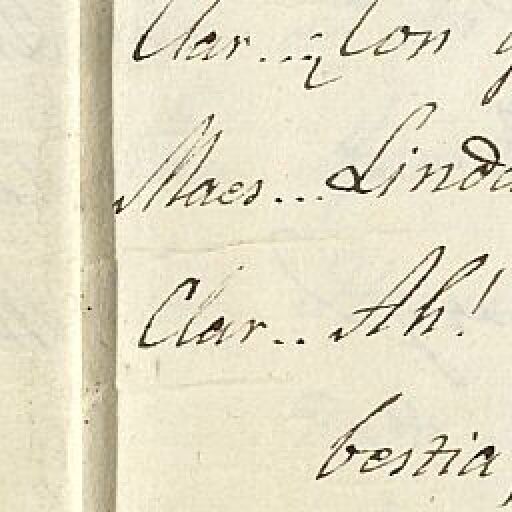 Clar...¿Con
Maes... Linda
Clar.. Ah!
bestia,